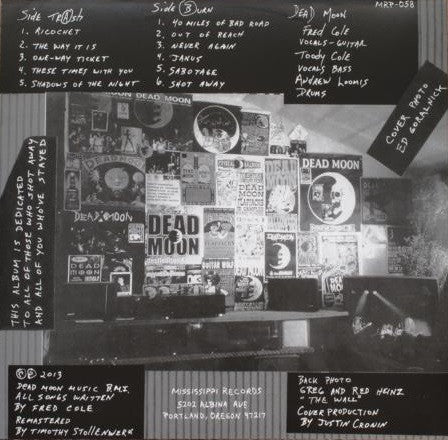 Side Tr(A)sh
1. RICOCHET
2. THE WAY IT IS
3. ONE-WAY TICKET
4. THESE TIMES WITH YOU
5. SHADOWS OF THE NIGHT
Side (B)urn
1. 40 MILES OF BAD ROAD
2. OUT OF REACH
3. NEVER AGAIN
4. JANUS
5. SABOTAGE
6. SHOT AWAY
DEAD MOON
FRED COLE
VOCALS-GUITAR
TOODY COLE
VOCALS BASS
ANDREW LOOMIS
DRUMS
MRP-058
COVER PHOTO
ED GORALNICK
THIS ALBUM IS DEDICATED
TO ALL OF THOSE WHO SHOT AWAY
AND ALL OF YOU WHO'VE STAYED
DEAD MOON
DEAD MOON
DEAD MOON
DEAD
MOON
DEAD
MOON
GUITAR WOLF
© ℗ 2013
DEAD MOON MUSIC BMI.
ALL SONGS WRITTEN
BY FRED COLE
REMASTERED
BY TIMOTHY STOLLENWERK
MISSISSIPPI RECORDS
5202 ALBINA AVE.
PORTLAND, OREGON 97217
BACK PHOTO
GREG AND RED HEINZ
"THE WALL"
COVER PRODUCTION
BY JUSTIN CRONIN